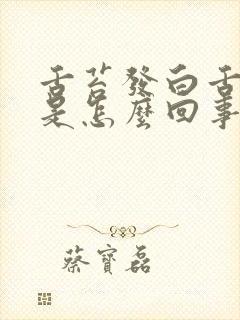 舌苔發白舌
是怎麼回事
蔡寶磊